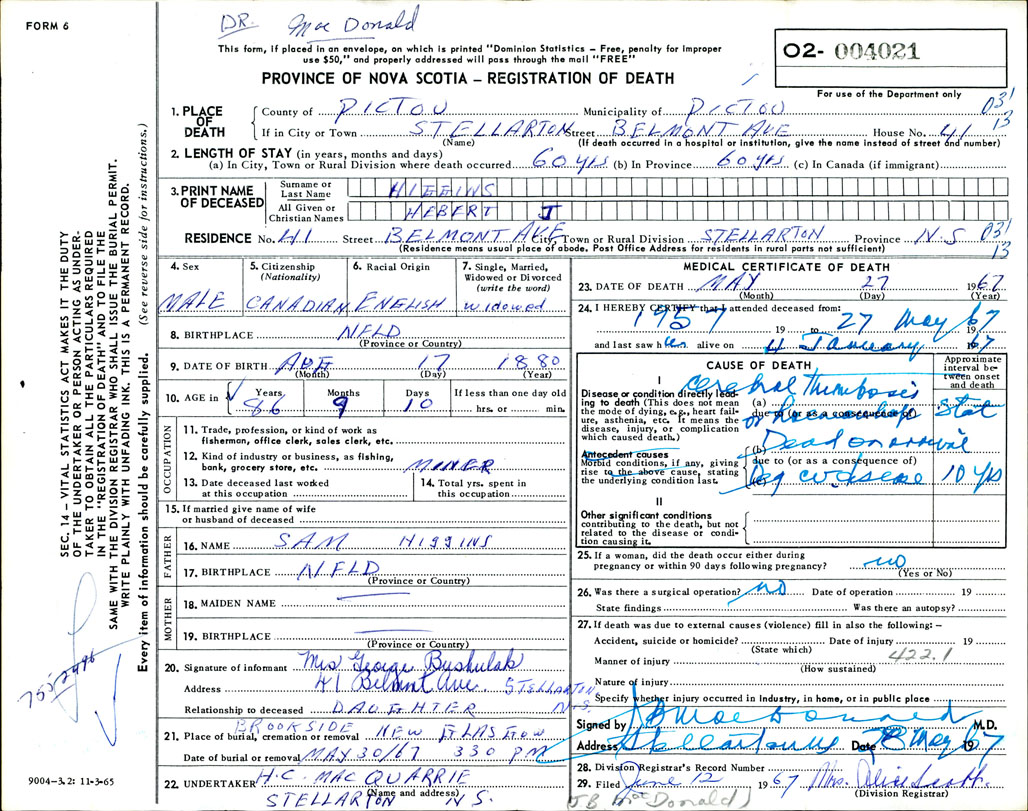 DR. Mac Donald
FORM 6
This form, if placed in an envelope, on which is printed "Dominion Statistics – Free, penalty for improper
use $50," and properly addressed will pass through the mail "FREE"
PROVINCE OF NOVA SCOTIA – REGISTRATION OF DEATH
O2- 004021
For use of the Department only
031
13
1. PLACE OF DEATH
County of PICTOU Municipality of PICTOU
If in City or Town STELLARTON Street BELMONT AVE House No. 41
(Name) (If death occurred in a hospital or institution, give the name instead of street and number)
2. LENGTH OF STAY (in years, months and days)
(a) In City, Town or Rural Division where death occurred 60 yrs (b) In Province 60 yrs (c) In Canada (if immigrant)
3. PRINT NAME OF DECEASED
Surname or Last Name HIGGINS
All Given or Christian Names HEBERT J
RESIDENCE No. 41 Street BELMONT AVE City, Town or Rural Division STELLARTON Province N.S 031
(Residence means usual place of abode. Post Office Address for residents in rural parts not sufficient)
13
4. Sex
MALE
5. Citizenship
(Nationality)
CANADIAN
6. Racial Origin
ENGLISH
7. Single, Married,
Widowed or Divorced
(write the word)
widowed
8. BIRTHPLACE NFLD
(Province or Country)
9. DATE OF BIRTH AUG 17 1880
(Month) (Day) (Year)
10. AGE in Years Months Days If less than one day old
86 9 10 hrs. or min.
OCCUPATION
11. Trade, profession, or kind of work as
fisherman, office clerk, sales clerk, etc.
12. Kind of industry or business, as fishing,
bank, grocery store, etc. MINER
13. Date deceased last worked
at this occupation
14. Total yrs. spent in
this occupation
15. If married give name of wife
or husband of deceased
FATHER
16. NAME SAM HIGGINS
17. BIRTHPLACE NFLD
(Province or Country)
MOTHER
18. MAIDEN NAME
19. BIRTHPLACE
(Province or Country)
20. Signature of informant Mrs George Bushulak
Address 41 Belmont Ave. STELLARTON
Relationship to deceased DAUGHTER N.S.
BROOKSIDE
21. Place of burial, cremation or removal NEW GLASGOW
Date of burial or removal MAY 30/67 3 30 PM
22. UNDERTAKER H.C. MACQUARRIE
(Name and address)
STELLARTON N S.
MEDICAL CERTIFICATE OF DEATH
23. DATE OF DEATH MAY 27 1967
(Month) (Day) (Year)
24. I HEREBY CERTIFY that I attended deceased from:
1957 19 to 27 May 67 19
and last saw h alive on 4 January 1967
CAUSE OF DEATH
Approximate
interval between onset
and death
I
Disease or condition directly leading to death (This does not mean
the mode of dying, e.g., heart failure, asthenia, etc. It means the
disease, injury, or complication
which caused death.)
(a) Cerebral Thrombosis
due to (or as a consequence of)
Stat
(b) Dead on arrival
Antecedent causes
Morbid conditions, if any, giving
rise to the above cause, stating
the underlying condition last.
due to (or as a consequence of)
(c) cv disease 10 yrs
II
Other significant conditions
contributing to the death, but not
related to the disease or condition causing it.
25. If a woman, did the death occur either during
pregnancy or within 90 days following pregnancy? no
(Yes or No)
26. Was there a surgical operation? no Date of operation 19
State findings Was there an autopsy?
27. If death was due to external causes (violence) fill in also the following: –
Accident, suicide or homicide? Date of injury 19
(State which) 422.1
Manner of injury
(How sustained)
Nature of injury
Specify whether injury occurred in Industry, in home, or in public place
Signed by J B MacDonald M.D.
Address Stellarton Date 28 May 1967
28. Division Registrar's Record Number
29. Filed June 12 1967 Mrs. Alice Scott.
(Division Registrar)
(J.B. MacDonald)
SEC. 14 – VITAL STATISTICS ACT MAKES IT THE DUTY
OF THE UNDERTAKER OR PERSON ACTING AS UNDERTAKER TO OBTAIN ALL THE PARTICULARS REQUIRED
IN THE "REGISTRATION OF DEATH" AND TO FILE THE
SAME WITH THE DIVISION REGISTRAR WHO SHALL ISSUE THE BURIAL PERMIT.
WRITE PLAINLY WITH UNFADING INK. THIS IS A PERMANENT RECORD.
Every item of information should be carefully supplied. (See reverse side for instructions.)
9004-3.2: 11-3-65